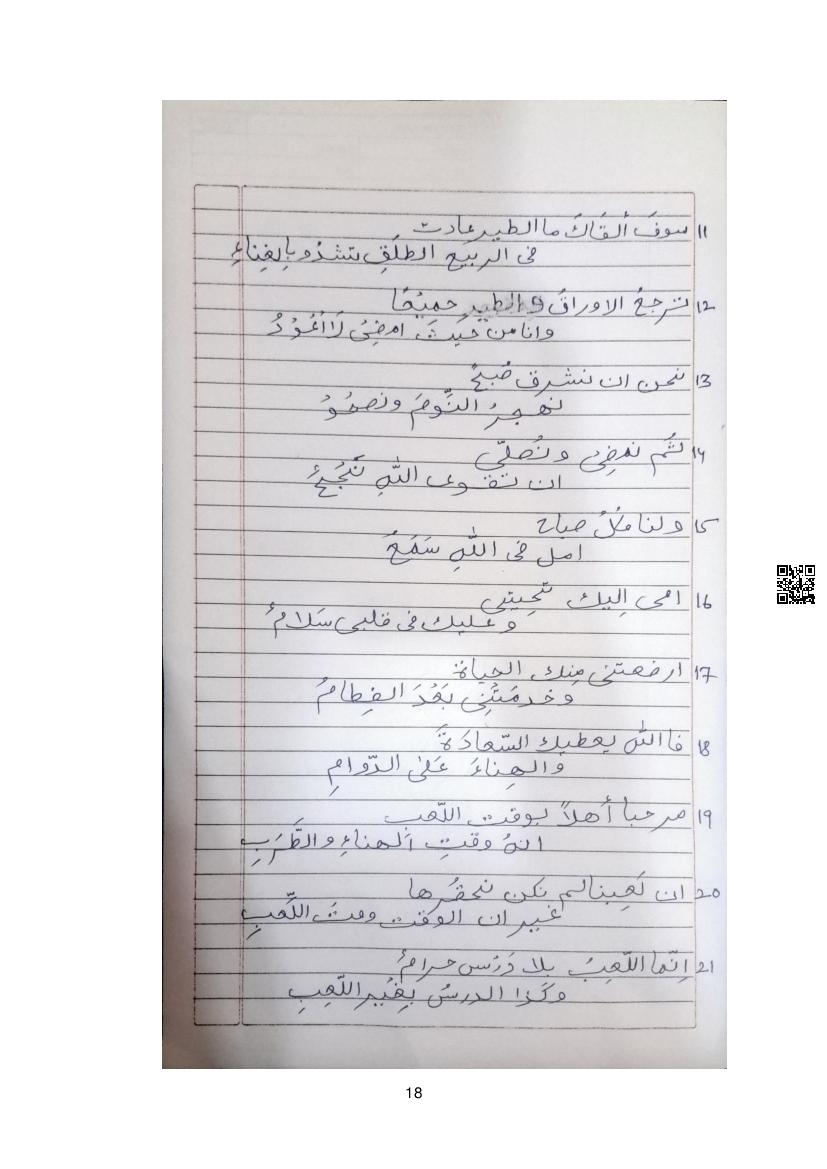 11 سوفَ ألقَاكَ ما الطير عادت
فى الربيع الطلَقِ تشدُو بِالغِناءِ
12 ترجعُ الاوراقُ و الطير جميعًا
وانا من حَيثَ امضِىُ لَا أعُوْدُ
13 نحن ان نشرق صُبحٌ
نهجرُ النَّومَ ونصحُوُ
14 ثُم نمضِىُ ونُصلّى
ان تقوى اللّٰهِ نُجُحٌ
15 ولنا كُلُ صباح
امل فى اللّٰهِ سَمَحٌ
16 امى اِليك تحِيتى
وعليك فى قلبى سَلامٌ
17 ارضعتنى مِنك الحياةَ
وخدمَتْنِى بَعْدَ الفِطامُ
18 فاالله يعطيك السّعادَةَ
والهِناءَ عَلىٰ الدّوامِ
19 مرحبا أهلاً بوقت اللّعب
انهُ وقتِ اَلهناءِ والطَّرَبِ
20 ان لَعِبنا لم نكن نحضُرها
غير ان الوقت وقتُ اللَّعبِ
21 اِنّما اللّعِبُ بلا دَرْس حرامٌ
وكَذا الدرسُ بِغَيْر اللّعِبِ
18